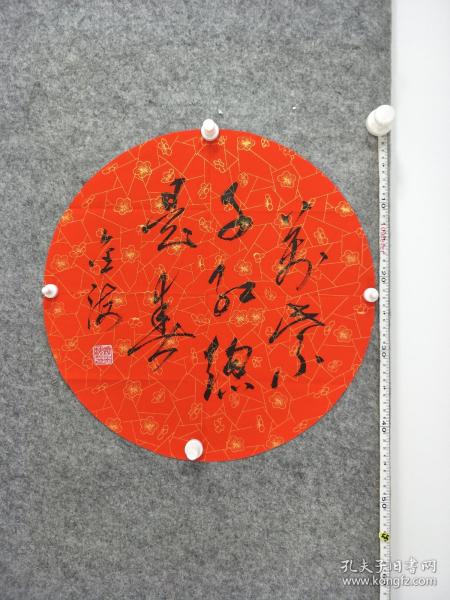 万紫
千红总
是春
金波
孔夫子旧书网
www.kongfz.com